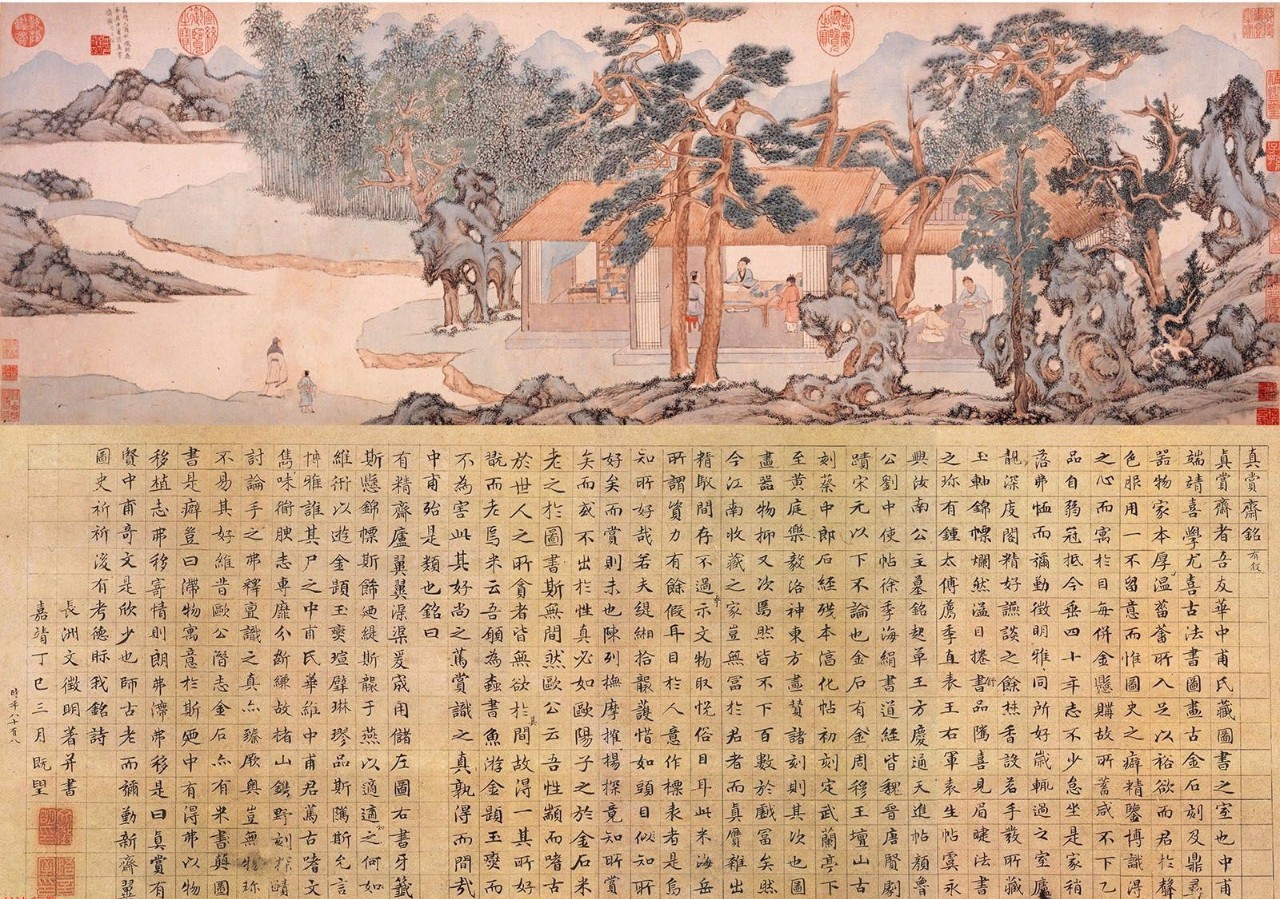 真賞齋銘 有叙
真賞齋者吾友華中甫氏藏圖書之室也中甫
端靖喜學尤喜古法書圖畫古金石刻及鼎彝
器物家本厚溫菑畬所入足以裕欲而君於聲
色服用一不留意而惟圖史之癖精鑒博識得
之心而寓於目每併金懸購故所蓄咸不下乙
品自弱冠抵今垂四十年志不少怠坐是家稍
落弗恤而彌勤徵明雅同所好歲輒過之室廬
靚深庋閣精好讌談之餘焫香設茗手發所藏
玉軸錦幖爛然溢目捲舒品隲喜見眉睫法書
之珍有鍾太傅薦季直表王右軍袁生帖虞永
興汝南公主墓銘起草王方慶通天進帖顏魯
公劉中使帖徐季海絹書道經皆魏晉唐賢劇
蹟宋元以下不論也金石有周穆王壇山古
刻蔡中郎石經殘本淳化帖初刻定武蘭亭下
至黃庭樂毅洛神東方畫贊諸刻則其次也圖
畫器物抑又次焉然皆不下百數於戲富矣然
今江南收藏之家豈無富於君者而真贗雜出
精駁間存不過夸示文物取悅俗目耳此米海岳
所謂資力有餘假耳目於人意作標表者是烏
知所好哉若夫緹緗拾襲護惜如頭目似知所
好矣而賞則未也陳列撫摩揚搉探竟知所賞
矣而或不出於性真必如歐陽子之於金石米
老之於圖書斯無間然歐公云吾性顓而嗜古
於世人之所貪者皆無欲於其間故得一其所好
翫而老焉米云吾願為蠹書魚游金題玉躞而
不為害此其好尚之篤賞識之真孰得而間哉
中甫殆是類也銘曰
有精齋廬翼翼渠渠爰宬用儲左圖右書牙籤
斯懸錦幖斯飾迺緹斯襲于燕以適適之何如
維衎以遊金題玉躞瑄璧琳璆品斯隲斯允言
博雅誰其尸之中甫氏華維中甫君篤古嗜文
雋味道腴志專靡分斷縑故楮山鐫野刻探賾
討論手之弗釋亶識之真亦臻厥奧豈無物珍
不易其好維昔歐公潛志金石亦有米書與圖
書是癖豈曰滯物寓意於斯迺中有得弗以物
移植志弗移寄情則朗弗滯弗移是曰真賞有
賢中甫奇文是欣少也師古老而彌勤新齋翼
圖史祈祈後有考德眎我銘詩
長洲文徵明著并書
嘉靖丁巳三月既望
時年八十有八